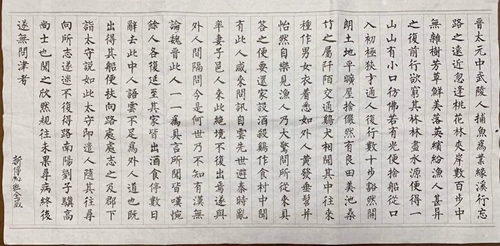 晉太元中武陵人捕魚為業緣溪行忘
路之遠近忽逢桃花林夾岸數百步中
無雜樹芳草鮮美落英繽紛漁人甚異
之復前行欲窮其林林盡水源便得一
山山有小口彷彿若有光便捨船從口
入初極狹才通人復行數十步豁然開
朗土地平曠屋舍儼然有良田美池桑
竹之屬阡陌交通雞犬相聞其中往來
種作男女衣著悉如外人黃髮垂髫並
怡然自樂見漁人乃大驚問所從來具
答之便要還家設酒殺雞作食村中聞
有此人咸來問訊自云先世避秦時亂
率妻子邑人來此絕境不復出焉遂與
外人間隔問今是何世乃不知有漢無
論魏晉此人一一為具言所聞皆嘆惋
餘人各復延至其家皆出酒食停數日
辭去此中人語雲不足為外人道也既
出得其船便扶向路處處志之及郡下
詣太守說如此太守即遣人隨其往尋
向所志遂迷不復得路南陽劉子驥高
尚士也聞之欣然規往未果尋病終後
遂無問津者